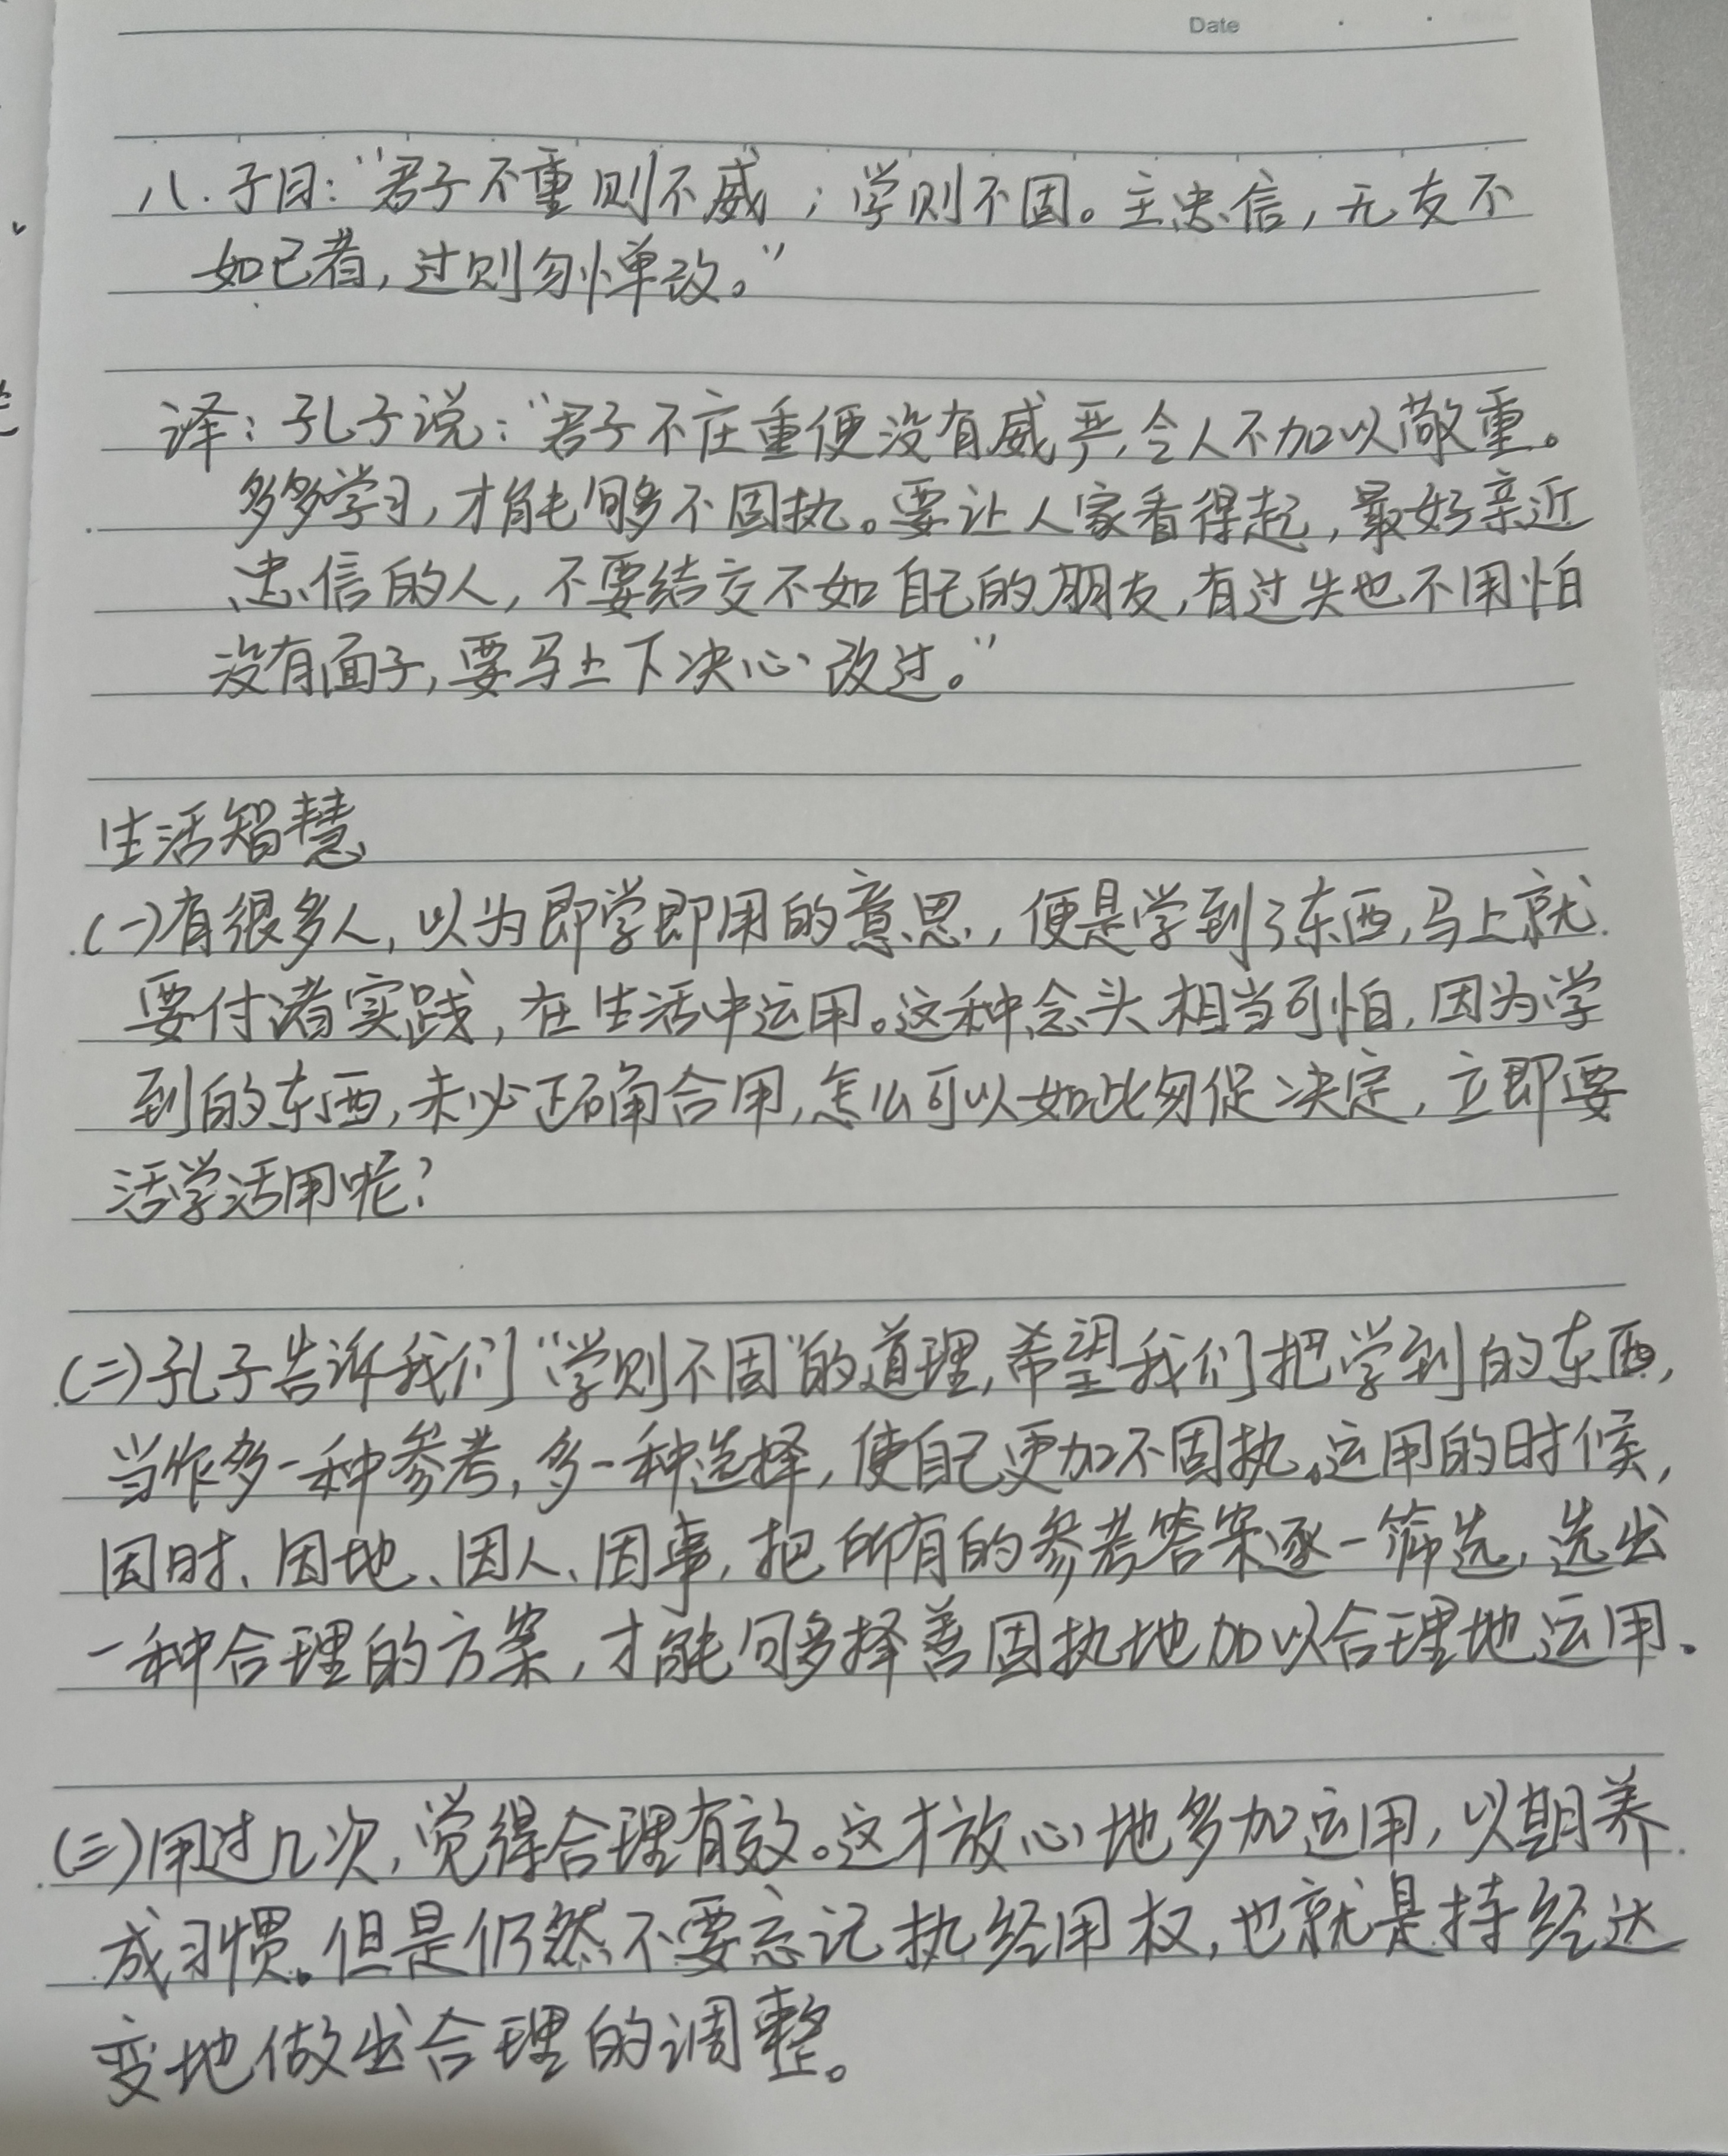 Date
八.子曰:“君子不重则不威;学则不固。主忠信,无友不
如己者,过则勿惮改。”
译:孔子说:“君子不庄重便没有威严,令人不加以敬重。
多多学习,才能够不固执。要让人家看得起,最好亲近
忠信的人,不要结交不如自己的朋友,有过失也不用怕
没有面子,要马上下决心改过。”
生活智慧
(一)有很多人,以为即学即用的意思,便是学到了东西,马上就
要付诸实践,在生活中运用。这种念头相当可怕,因为学
到的东西,未必正确合用,怎么可以如此匆促决定,立即要
活学活用呢?
(二)孔子告诉我们“学则不固”的道理,希望我们把学到的东西,
当作多一种参考,多一种选择,使自己更加不固执。运用的时候,
因时、因地、因人、因事,把所有的参考答案逐一筛选,选出
一种合理的方案,才能够择善固执地加以合理地运用。
(三)用过几次,觉得合理有效。这才放心地多加运用,以期养
成习惯。但是仍然不要忘记执经用权,也就是持经达
变地做出合理的调整。